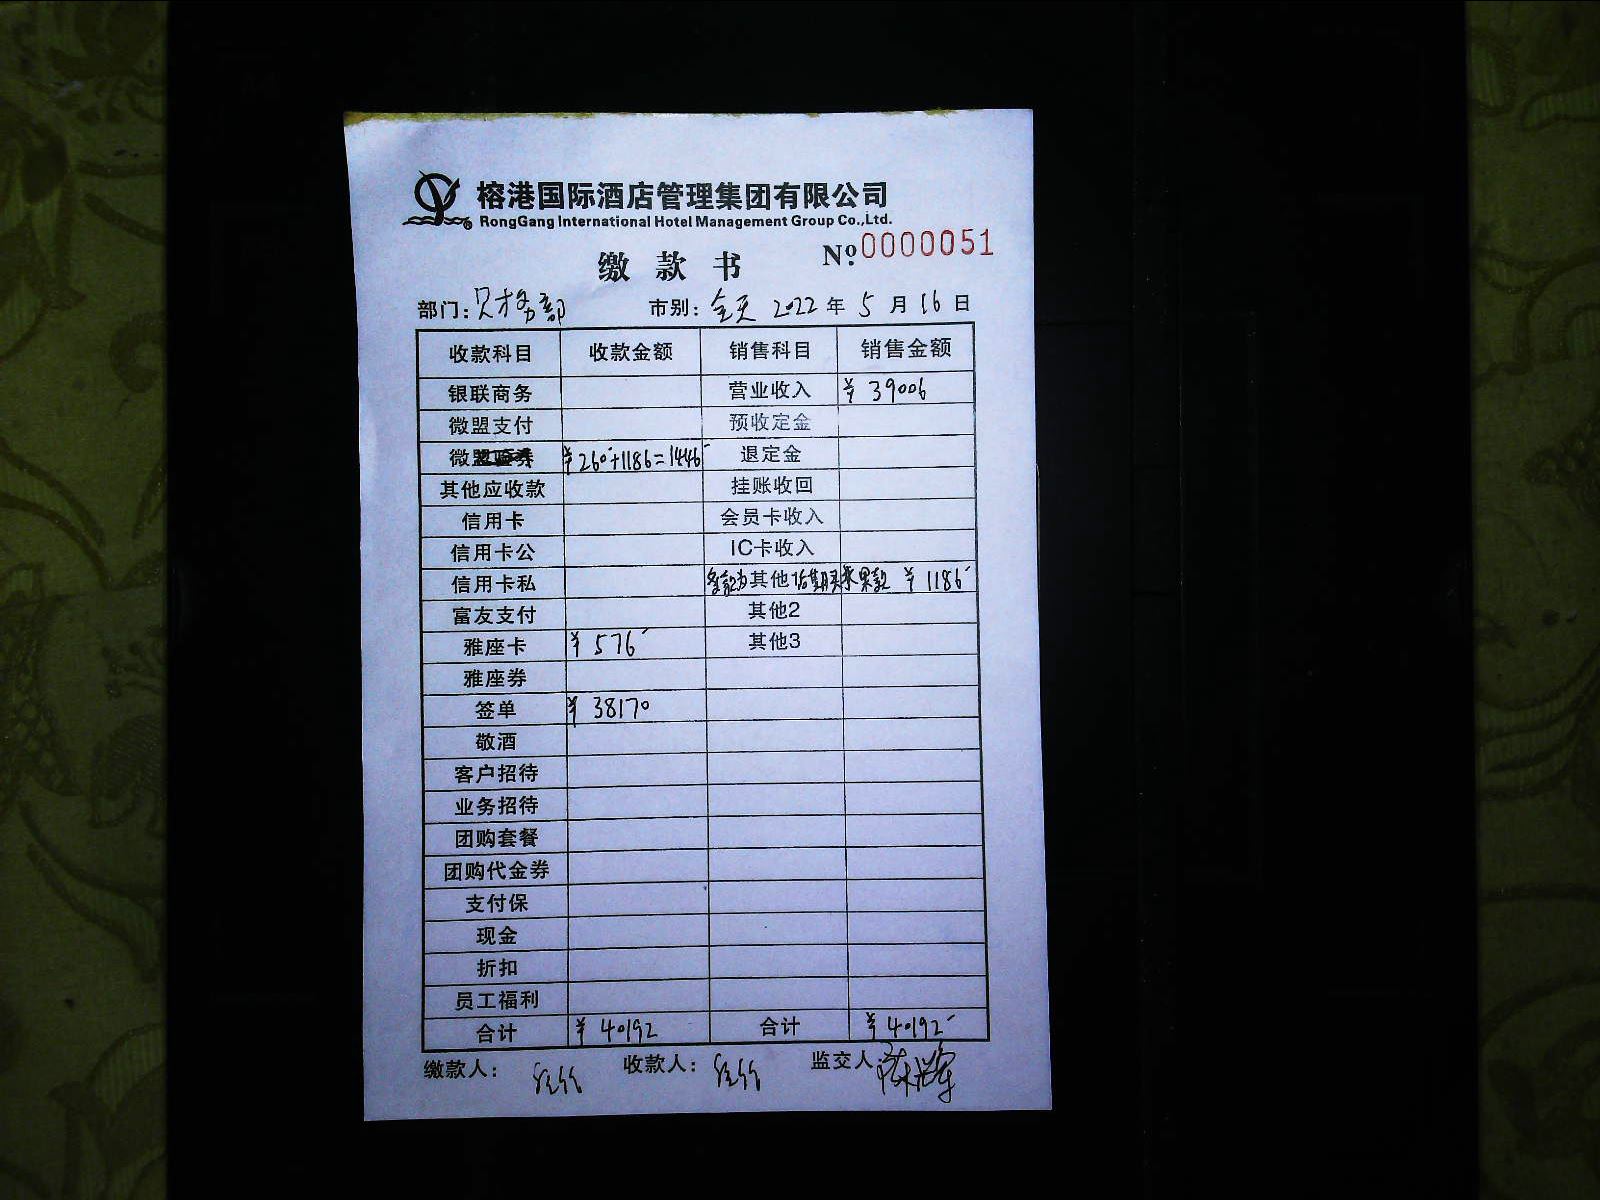 榕港国际酒店管理集团有限公司
RongGang International Hotel Management Group Co.,Ltd.
缴款书 №:0000051
部门:财务部 市别:全天 2022年5月16日
收款科目 收款金额 销售科目 销售金额
银联商务 营业收入 ¥39006
微盟支付 预收定金
微盟 ¥260+1186=1446 退定金
其他应收款 挂账收回
信用卡 会员卡收入
信用卡公 IC卡收入
信用卡私 其他 果款 ¥1186
富友支付 其他2
雅座卡 ¥576 其他3
雅座券
签单 ¥38170
敬酒
客户招待
业务招待
团购套餐
团购代金券
支付保
现金
折扣
员工福利
合计 ¥40192 合计 ¥40192
缴款人: 收款人: 监交人: